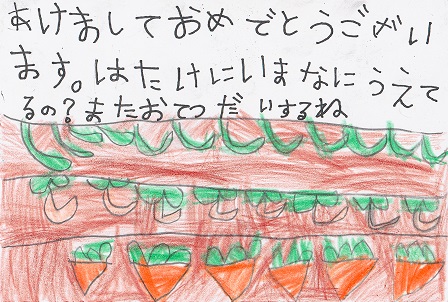 あけましておめでとうございい
ます。はたけにいまなにうえて
るの?またおてつだいするね